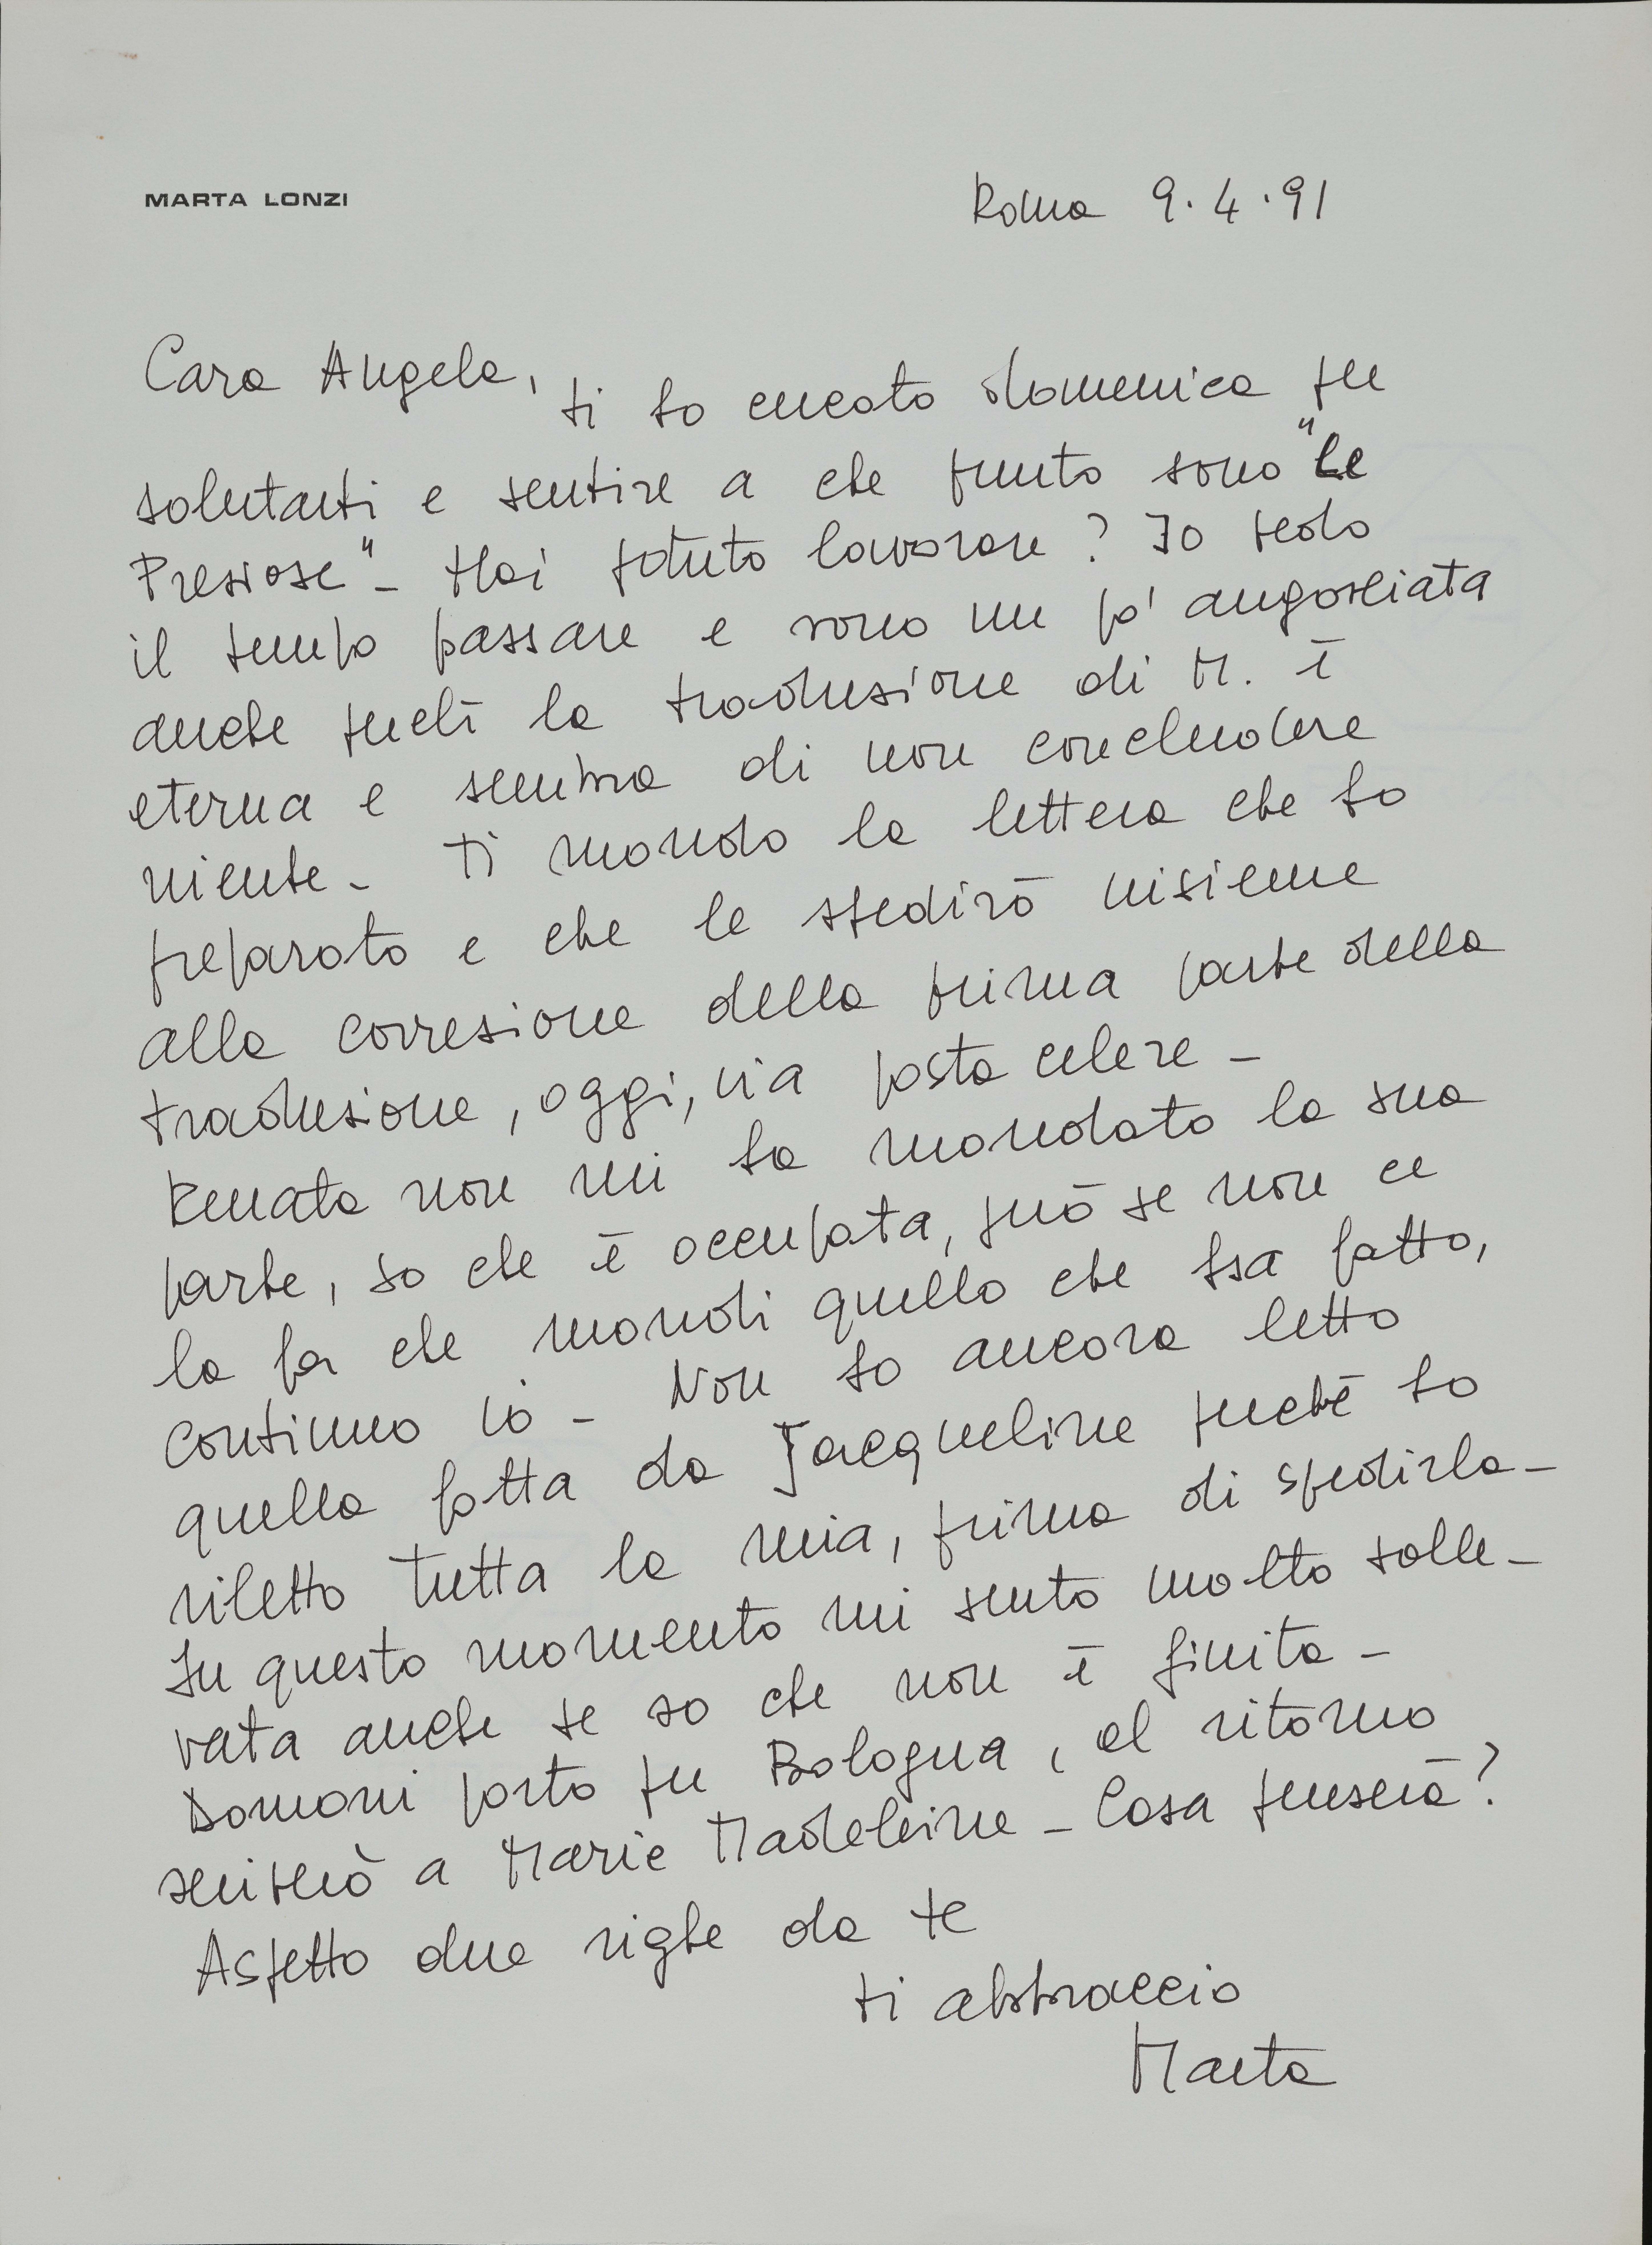 MARTA LONZI
Roma 9.4.91
Cara Angela,
ti ho cercato domenica per
salutarti e sentire a che punto sono "Le
Preziose" - Hai potuto lavorare? Io vedo
il tempo passare e sono un po' angosciata
anche perché la traduzione di M. è
eterna e sembra di non concludere
niente - Ti mando la lettera che ho
preparato e che le spedirò insieme
alla correzione della prima parte della
traduzione, oggi, via posta celere -
Renata non mi ha mandato la sua
parte, so che è occupata, però se non ce
la fa che mandi quello che ha fatto,
continuo io - Non ho ancora letto
quella fatta da Jacqueline perché ho
riletto tutta la mia, prima di spedirla -
In questo momento mi sento molto solle-
vata anche se so che non è finita -
Domani parto per Bologna, al ritorno
scriverò a Marie Madeleine - Cosa penserà?
Aspetto due righe da te
ti abbraccio
Marta